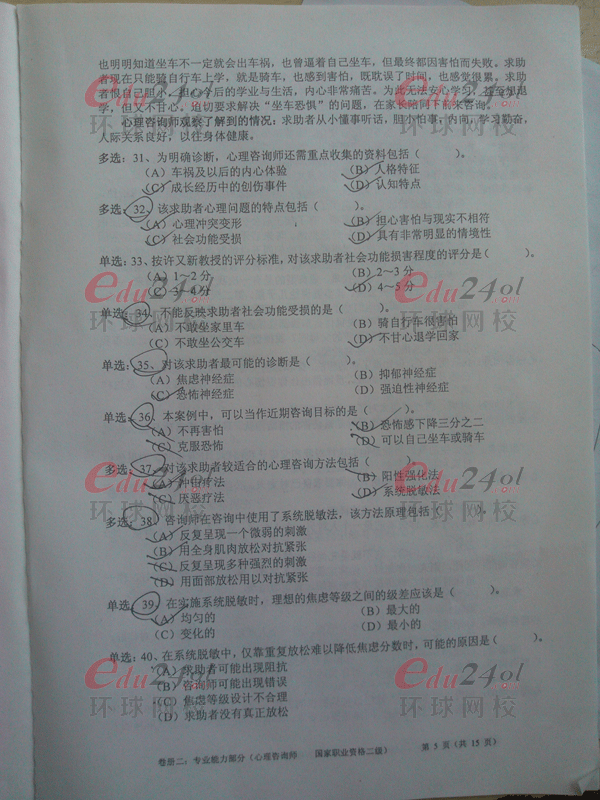 也明明知道坐车不一定就会出车祸，也曾逼着自己坐车，但最终都因害怕而失败。求助
者现在只能骑自行车上学，就是骑车，也感到害怕，既耽误了时间，也感觉很累。求助
者恨自己胆小，担心今后的学业与生活，内心非常痛苦。为此无法安心学习，甚至想退
学，但又不甘心。迫切要求解决“坐车恐惧”的问题，在家长陪同下前来咨询。
心理咨询师观察了解到的情况：求助者从小懂事听话，胆小怕事，内向，学习勤奋，
人际关系良好，以往身体健康。
多选：31、为明确诊断，心理咨询师还需重点收集的资料包括（ ）。
（A）车祸及以后的内心体验 （B）人格特征
（C）成长经历中的创伤事件 （D）认知特点
多选：32、该求助者心理问题的特点包括（ ）。
（A）心理冲突变形 （B）担心害怕与现实不相符
（C）社会功能受损 （D）具有非常明显的情境性
单选：33、按许又新教授的评分标准，对该求助者社会功能损害程度的评分是（ ）。
（A）1～2 分 （B）2～3 分
（C）3～4 分 （D）4～5 分
单选：34、不能反映求助者社会功能受损的是（ ）。
（A）不敢坐家里车 （B）骑自行车很害怕
（C）不敢坐公交车 （D）不甘心退学回家
单选：35、对该求助者最可能的诊断是（ ）。
（A）焦虑神经症 （B）抑郁神经症
（C）恐怖神经症 （D）强迫性神经症
单选：36、本案例中，可以当作近期咨询目标的是（ ）。
（A）不再害怕 （B）恐怖感下降三分之二
（C）克服恐怖 （D）可以自己坐车或骑车
多选：37、对该求助者较适合的心理咨询方法包括（ ）。
（A）冲击疗法 （B）阳性强化法
（C）厌恶疗法 （D）系统脱敏法
多选：38、咨询师在咨询中使用了系统脱敏法，该方法原理包括（ ）。
（A）反复呈现一个微弱的刺激
（B）用全身肌肉放松对抗紧张
（C）反复呈现多种强烈的刺激
（D）用面部放松用以对抗紧张
单选：39、在实施系统脱敏时，理想的焦虑等级之间的级差应该是（ ）。
（A）均匀的 （B）最大的
（C）变化的 （D）最小的
单选：40、在系统脱敏中，仅靠重复放松难以降低焦虑分数时，可能的原因是（ ）。
（A）求助者可能出现阻抗
（B）咨询师可能出现错误
（C）焦虑等级设计不合理
（D）求助者没有真正放松
卷册二：专业能力部分（心理咨询师 国家职业资格二级） 第 5 页（共 15 页）
edu24ol
环球网校
edu24ol
环球网校
edu24ol
环球网校
edu24ol
环球网校
edu24ol
环球网校
edu24ol
环球网校
edu24ol
环球网校
edu24ol
环球网校